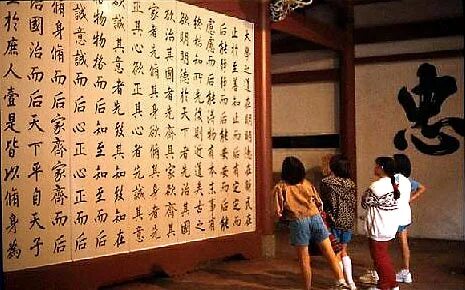 大學之道在明明德在親民在
止於至善知止而后有定定而
后能靜靜而后能安安而后能
慮慮而后能得物有本末事有
終始知所先後則近道矣古之
欲明明德於天下者先治其國
欲治其國者先齊其家欲齊其
家者先脩其身欲脩其身者先
正其心欲正其心者先誠其意
欲誠其意者先致其知致知在
格物物格而后知至知至而后
誠意誠而后心正心正而后
身脩身脩而后家齊家齊而后
治國治而后天下平自天子
於庶人壹是皆以脩身為
忠